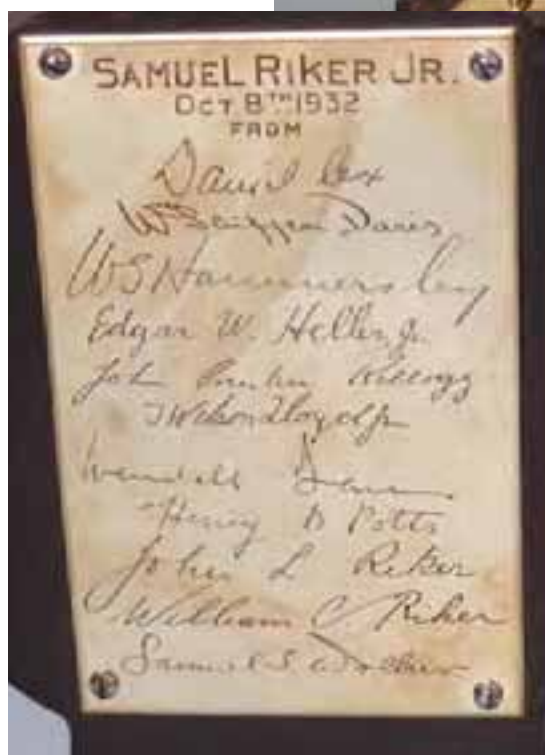 SAMUEL RIKER JR.
OCT 8TH 1932
FROM
Daniel Cox
Wm Davies
W S Hammersley
Edgar W. Heller, Jr.
John Kellogg
J Wilson Lloyd Jr
Wendell
Henry D Potts
John L Riker
William C Riker
Samuel S.